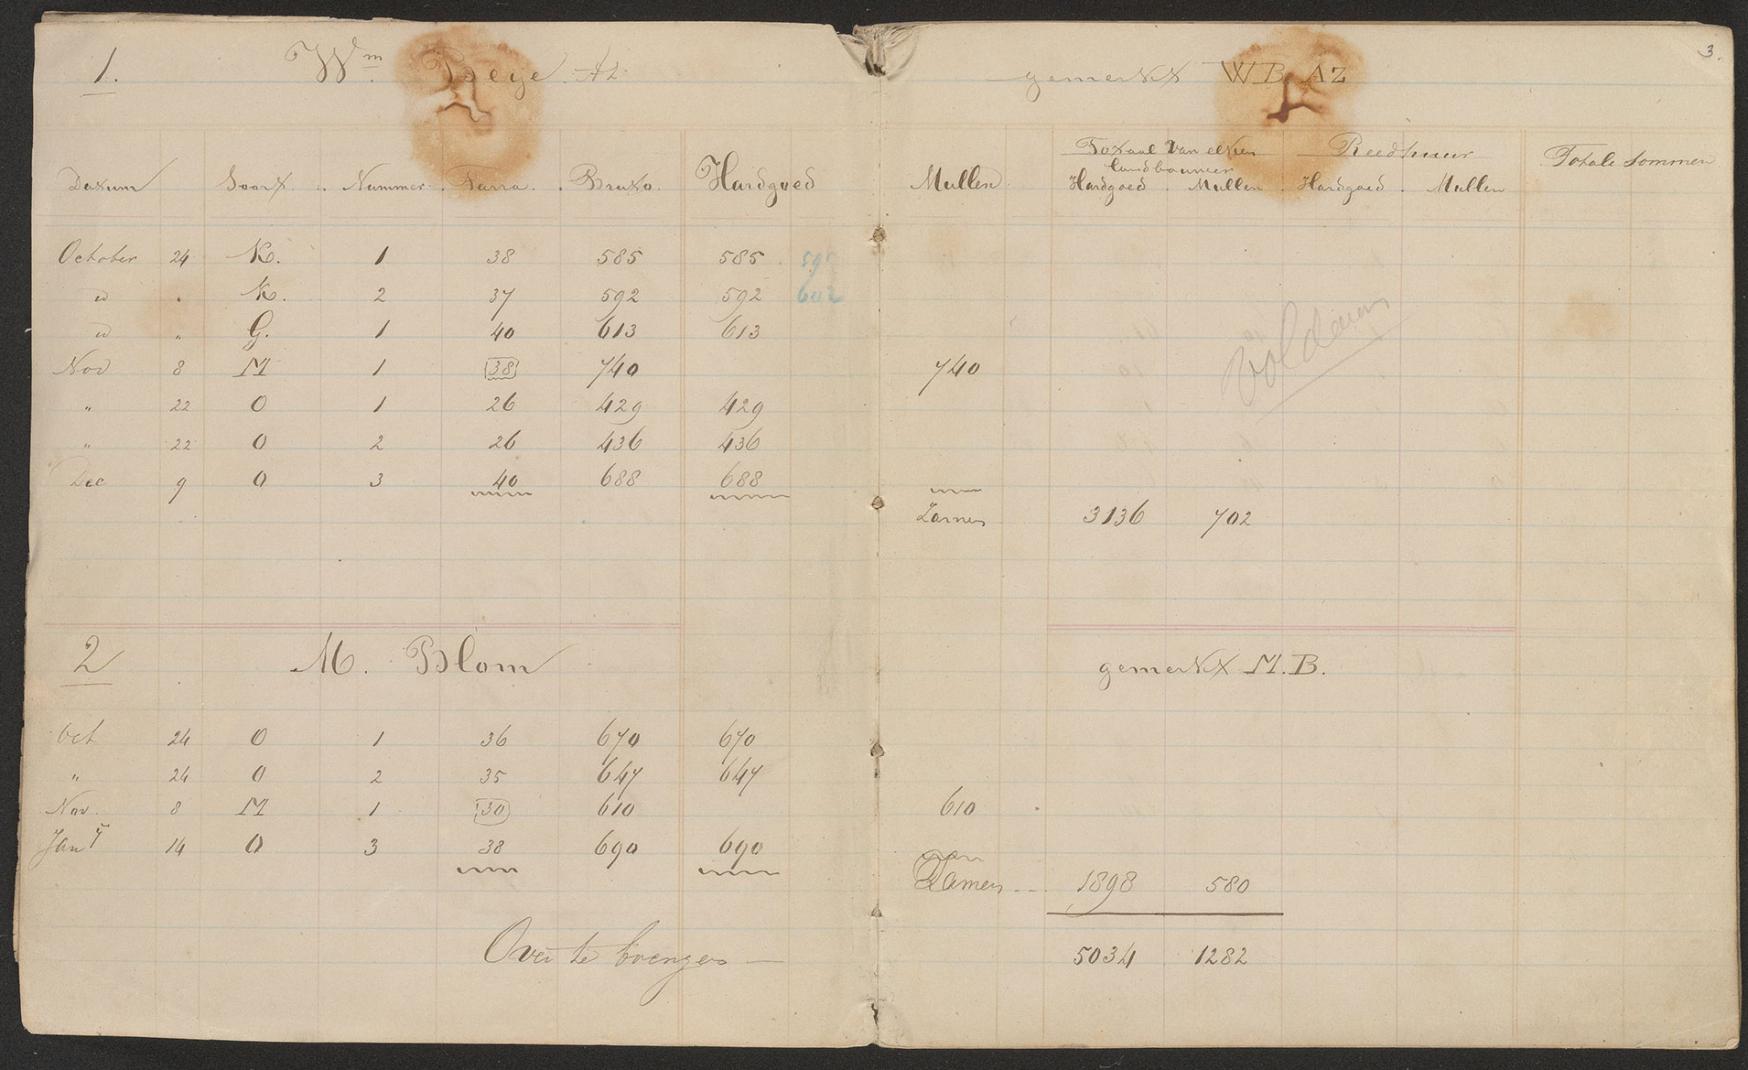 1. Wm Beije Az gemerkt WB AZ 3.
Totaal van elken Reedhuur Totale Sommen
landbouwer
Datum Soort Nummer Tarra Bruto Hardgoed Mullen Hardgoed Mullen Hardgoed Mullen
October 24 K. 1 38 585 585 595
" " K. 2 37 592 592 602
" " G. 1 40 613 613
Nov 8 M 1 38 740 740
" 22 O 1 26 429 429
" 22 O 2 26 436 436
Dec 9 O 3 40 688 688
Zamen 3136 702
2 M. Blom gemerkt M.B.
Oct 24 O 1 36 670 670
" 24 O 2 35 647 647
Nov. 8 M 1 30 610 610
Jany 14 O 3 38 690 690
Zamen 1898 580
Over te brengen 5034 1282